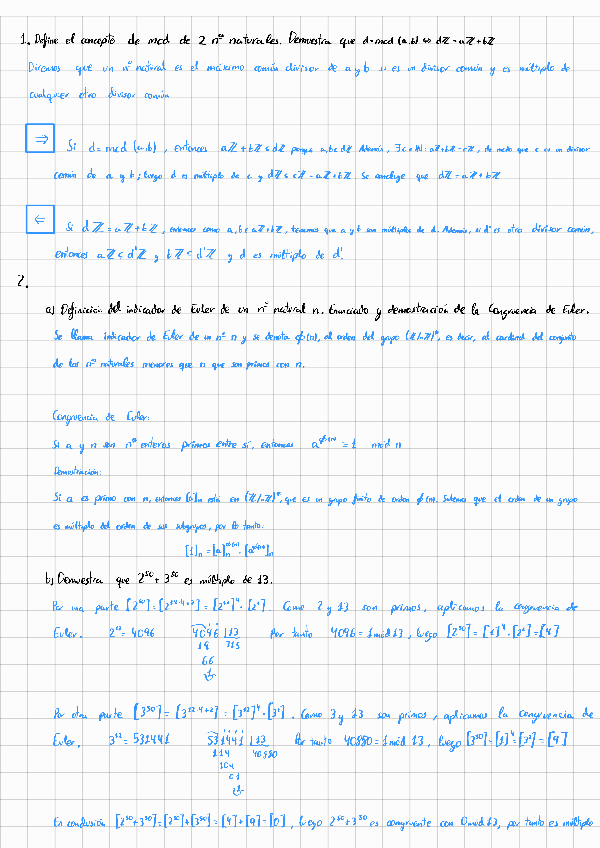 1. Define el concepto de mcd de 2 nº naturales. Demuestra que d=mcd (a,b) ⇔ dℤ = aℤ+bℤ
Diremos que un nº natural es el máximo común divisor de a y b si es un divisor común y es múltiplo de
cualquier otro divisor común
⇒ Si d=mcd (a,b), entonces aℤ+bℤ ⊂ dℤ porque a,b∈dℤ Además, ∃c∈ℕ: aℤ+bℤ=cℤ, de modo que c es un divisor
común de a y b; luego d es múltiplo de c y dℤ ⊂ cℤ = aℤ+bℤ Se concluye que dℤ = aℤ+bℤ
⇐ Si dℤ = aℤ+bℤ, entonces como a,b∈aℤ+bℤ, tenemos que a y b son múltiplos de d. Además, si d' es otro divisor común,
entonces aℤ ⊂ d'ℤ y bℤ ⊂ d'ℤ y d es múltiplo de d'.
2.
a) Definición del indicador de Euler de un nº natural n. Enunciado y demostración de la Congruencia de Euler.
Se llama indicador de Euler de un nº n y se denota ϕ(n), al orden del grupo (ℤ/nℤ)*, es decir, al cardinal del conjunto
de los nº naturales menores que n que son primos con n.
Congruencia de Euler:
Si a y n son nº enteros primos entre sí, entonces a^ϕ(n) = 1 mod n
Demostración:
Si a es primo con n, entonces [a]n está en (ℤ/nℤ)*, que es un grupo finito de orden ϕ(n). Sabemos que el orden de un grupo
es múltiplo del orden de sus subgrupos, por lo tanto:
[1]n = [a]n^ϕ(n) = [a^ϕ(n)]n
b) Demuestra que 2^50 + 3^50 es múltiplo de 13.
Por una parte [2^50] = [2^12·4+2] = [2^12]^4 · [2²]. Como 2 y 13 son primos, aplicamos la congruencia de
Euler. 2^12 = 4096 4096 |13 Por tanto 4096 = 1 mod 13, luego [2^50] = [1]^4 · [2²] = [4]
19 315
66
1
Por otra parte [3^50] = [3^12·4+2] = [3^12]^4 · [3²]. Como 3 y 13 son primos, aplicamos la congruencia de
Euler. 3^12 = 531441 531441 |13 Por tanto 40880 = 1 mod 13, luego [3^50] = [1]^4 = [3²] = [9]
114 40880
104
01
1
En conclusión [2^50+3^50] = [2^50]+[3^50] = [4]+[9] = [0], luego 2^50+3^50 es congruente con 0 mod 13, por tanto es múltiplo